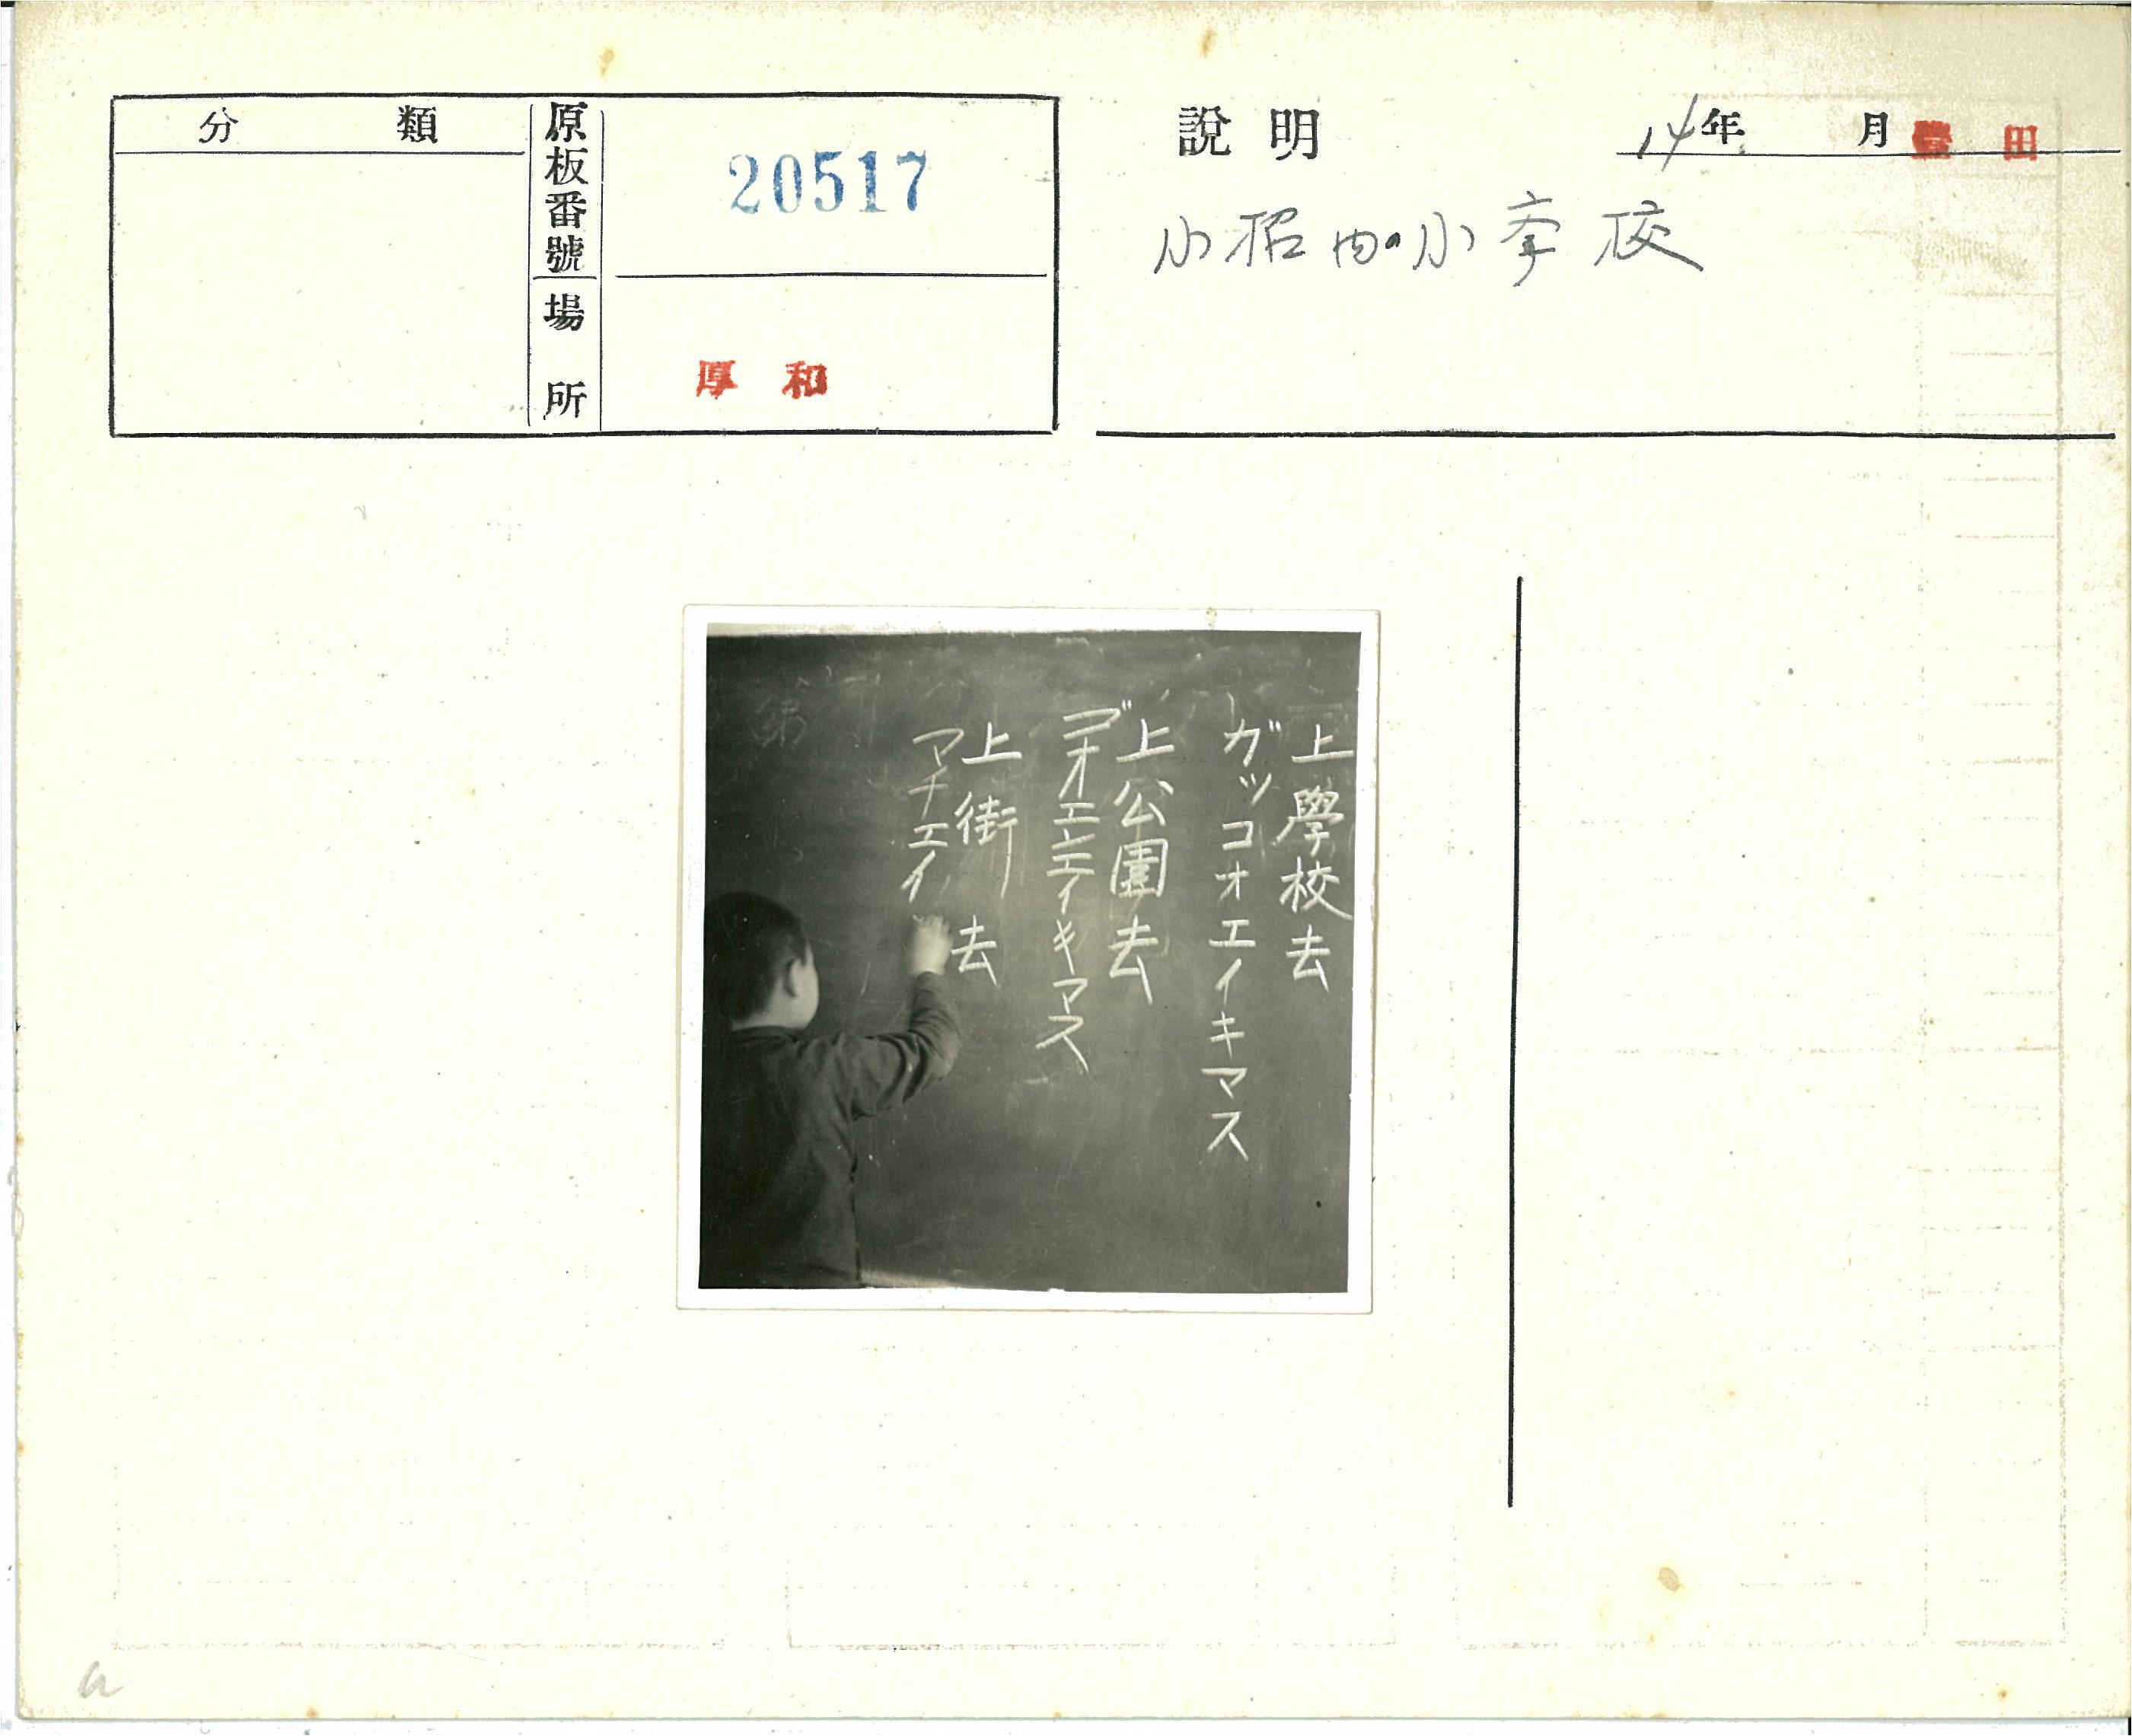 分類
原板番號
20517
場所
厚和
說明
14年 月 豐田
小招内の小斈校
上學校去
ガッコオエイキマス
上公園去
ゴオエンエイキマス
上街去
マチエイ